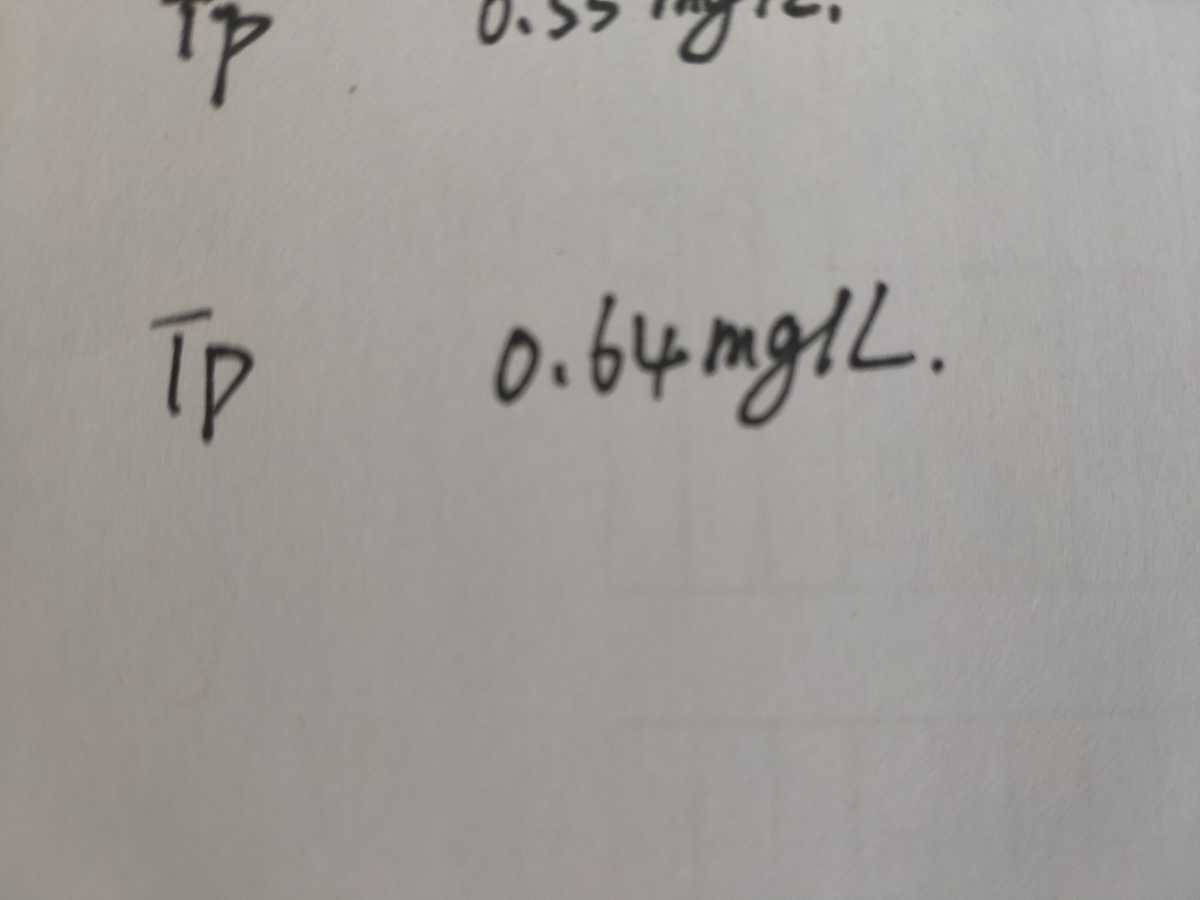 Tp 0.55 mg/L.
Tp 0.64 mg/L.